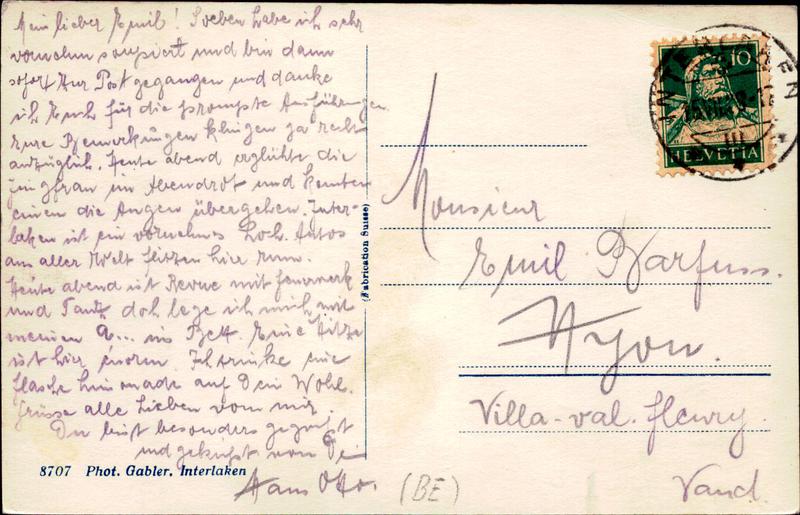 Mein lieber Emil! Soeben habe ich sehr
vornehm soupiert und bin dann
sofort zur Post gegangen und danke
ich Euch für die prompte Ausführung.
Eure Bemerkungen klingen ja recht
anzüglich. Heute abend erglühte die
Jungfrau im Abendrot und konnten
einen die Augen übergehen. Inter-
laken ist ein vornehmes Loch. Autos
aus aller Welt flitzen hier rum.
Heute abend ist Revue mit Feuerwerk
und Tanz doh lege ich mich mit
meinen A... ins Bett. Eine Hitze
ist hier enorm. Ich trinke eine
Flasche Limonade auf Dein Wohl.
Grüsse alle Lieben von mir.
Du bist besonders gegrüsst
und geküsst von Dei
Hans Otto.
8707 Phot. Gabler, Interlaken
(BE)
(Fabrication Suisse)
INTERLAKEN
10
HELVETIA
Monsieur
Emil Barfuss.
Nyon.
Villa-val. fleury
Vaud.